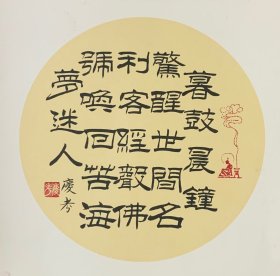 暮鼓晨鐘
驚醒世間名
利客經聲佛
號喚回苦海
夢迷人
慶